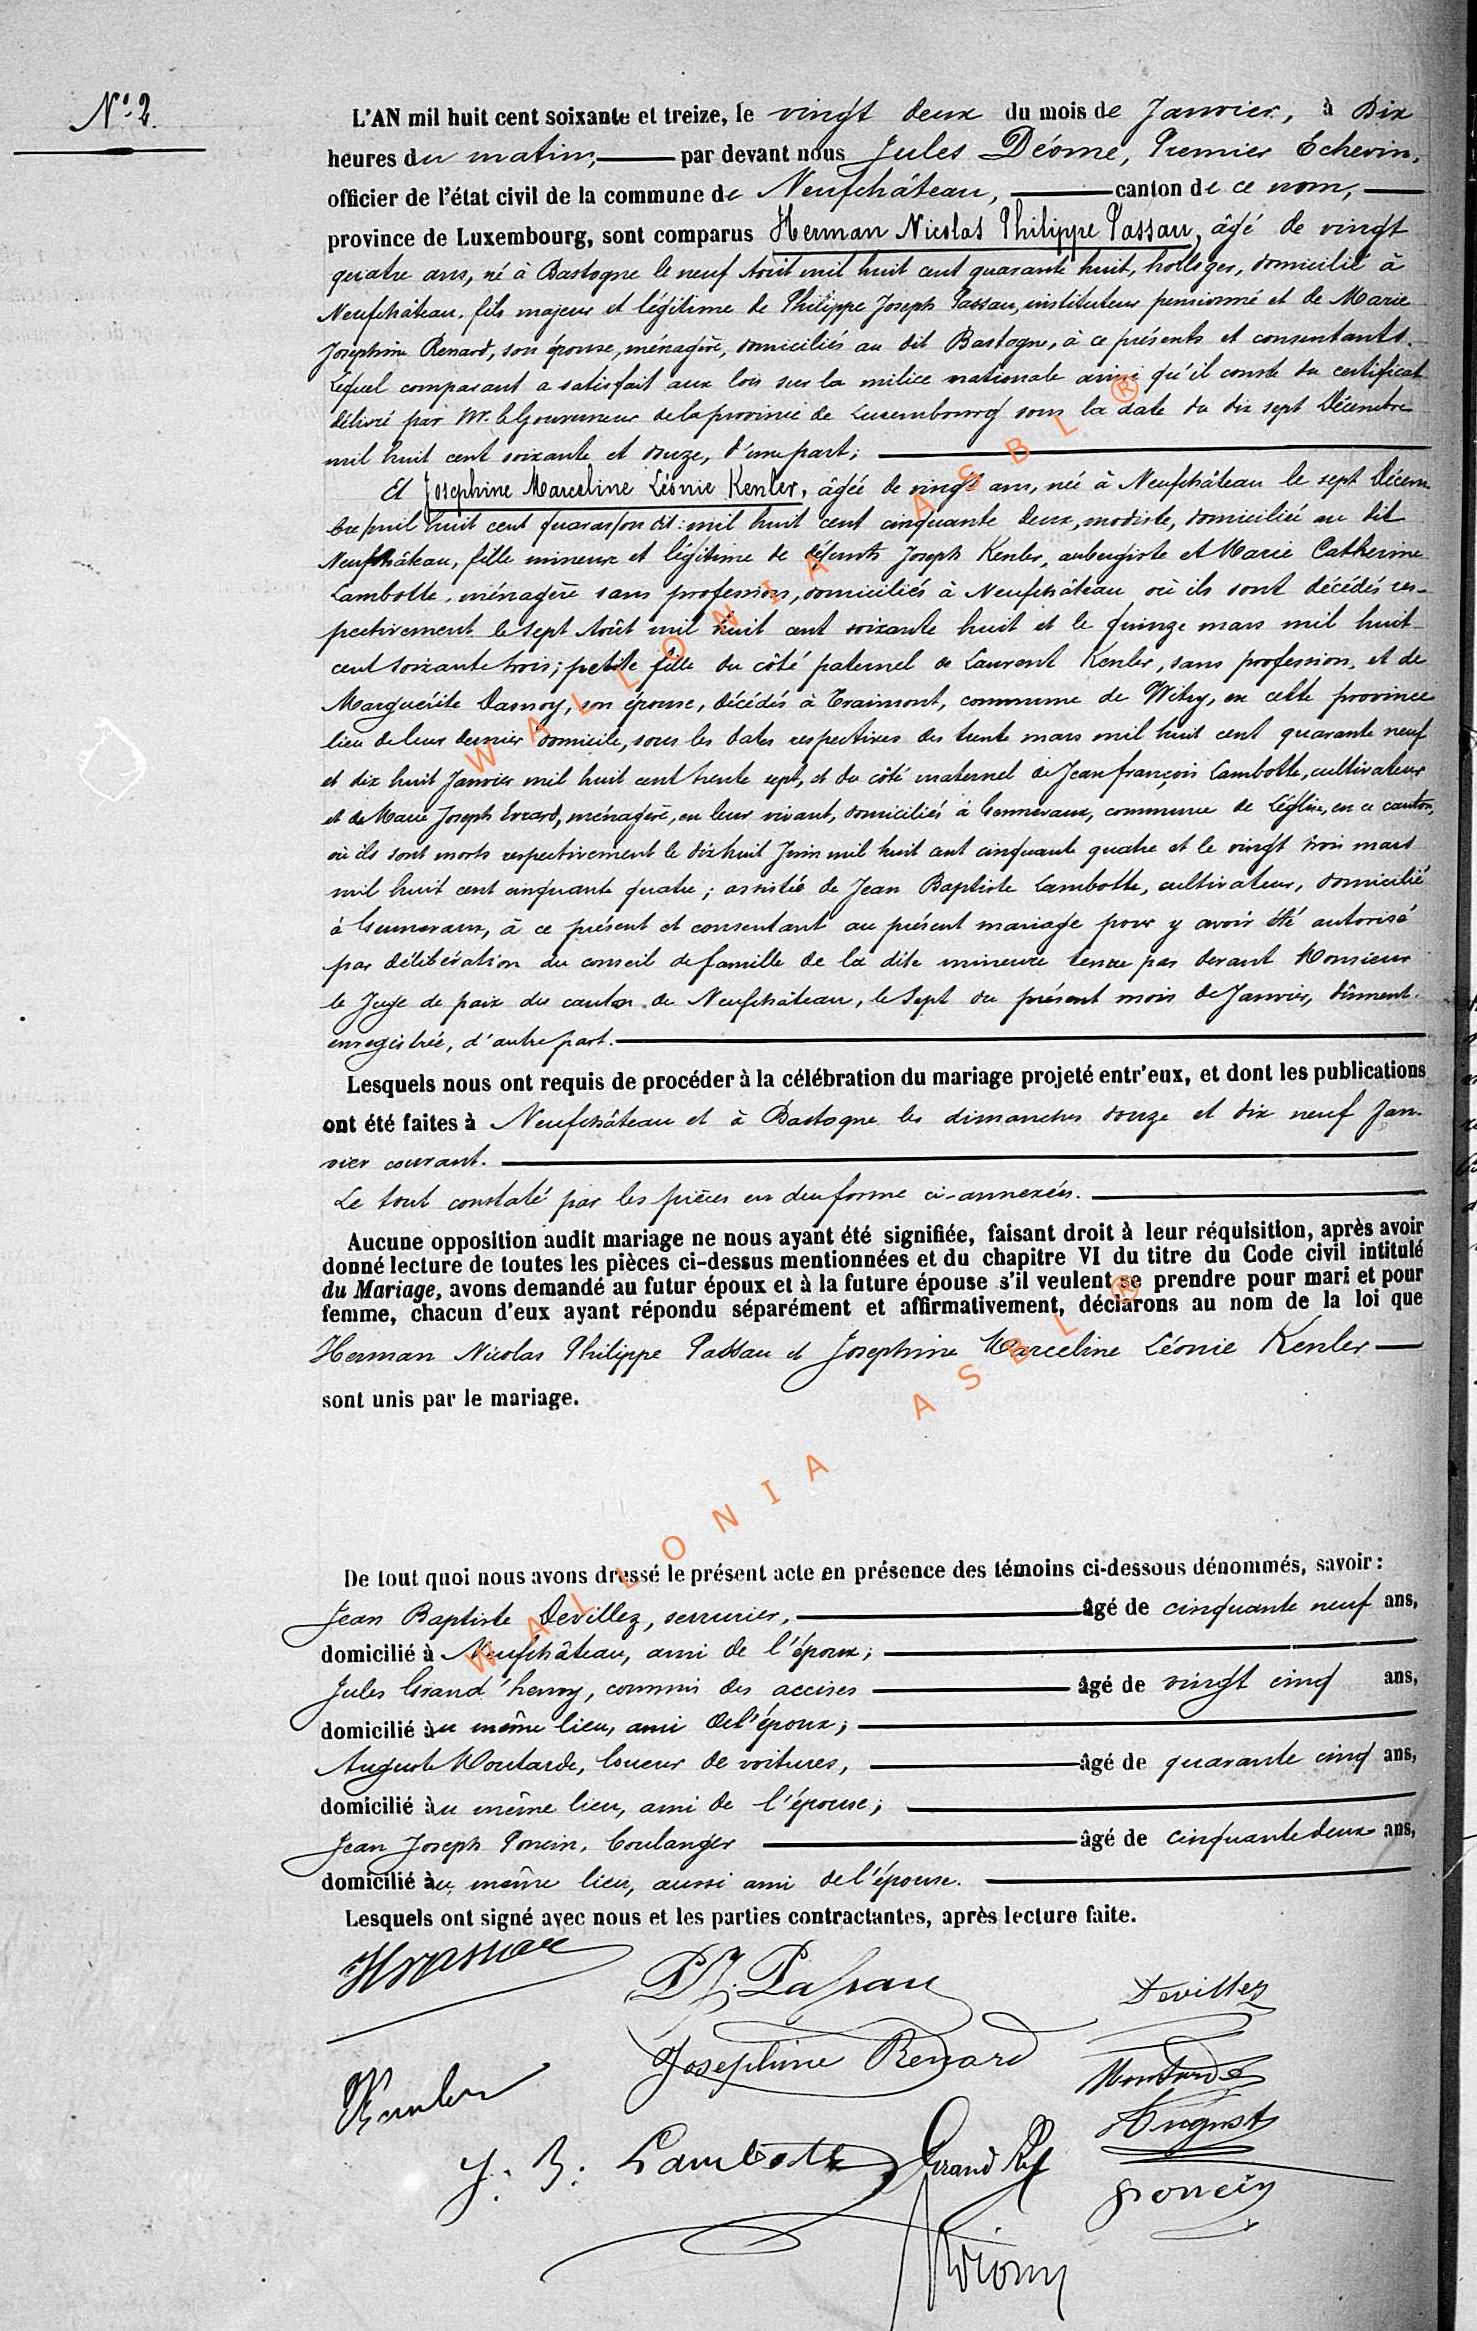 N° 2.
L'AN mil huit cent soixante et treize, le vingt deux du mois de Janvier, à Dix
heures du matin, par devant nous Jules Déome, Premier Echevin,
officier de l'état civil de la commune de Neufchâteau, canton de ce nom,
province de Luxembourg, sont comparus Herman Nicolas Philippe Passau, âgé de vingt
quatre ans, né à Bastogne le neuf Août mil huit cent quarante huit, horloger, domicilié à
Neufchâteau, fils majeur et légitime de Philippe Joseph Passau, instituteur pensionné et de Marie
Joséphine Renard, son épouse, ménagère, domiciliés au dit Bastogne, à ce présents et consentants.
Lequel comparant a satisfait aux lois sur la milice nationale ainsi qu'il conste du certificat
délivré par Mr. le Gouverneur de la province de Luxembourg sous la date du dix sept Décembre
mil huit cent soixante et douze, d'une part;
Et Josephine Marceline Léonie Kenler, âgée de vingt ans, née à Neufchâteau le sept Décem-
bre mil huit cent quaran, on dit: mil huit cent cinquante deux, modiste, domiciliée au dit
Neufchâteau, fille mineure et légitime de défunts Joseph Kenler, aubergiste et Marie Catherine
Lambotte, ménagère sans profession, domiciliés à Neufchâteau où ils sont décédés res-
pectivement le sept Août mil huit cent soixante huit et le quinze mars mil huit
cent soixante trois; petite fille du côté paternel de Laurent Kenler, sans profession, et de
Marguérite Dasnoy, son épouse, décédés à Traimont, commune de Witry, en cette province
lieu de leur dernier domicile, sous les dates respectives des trente mars mil huit cent quarante neuf
et dix huit Janvier mil huit cent trente sept, et du côté maternel de Jean françois Lambotte, cultivateur
et de Marie Joseph Evrard, ménagère, en leur vivant, domiciliés à Gennevaux, commune de Léglise, en ce canton,
où ils sont morts respectivement le dix huit Juin mil huit cent cinquante quatre et le vingt trois mars
mil huit cent cinquante quatre; assistée de Jean Baptiste Lambotte, cultivateur, domicilié
à Gennevaux, à ce présent et consentant au présent mariage pour y avoir été autorisé
par délibération du conseil de famille de la dite mineure tenue par devant Monsieur
le Juge de paix du canton de Neufchâteau, le Sept du présent mois de Janvier, dûment
enregistrée, d'autre part.
Lesquels nous ont requis de procéder à la célébration du mariage projeté entr'eux, et dont les publications
ont été faites à Neufchâteau et à Bastogne les dimanches douze et dix neuf Jan-
vier courant.
Le tout constaté par les pièces en due forme ci-annexées.
Aucune opposition audit mariage ne nous ayant été signifiée, faisant droit à leur réquisition, après avoir
donné lecture de toutes les pièces ci-dessus mentionnées et du chapitre VI du titre du Code civil intitulé
du Mariage, avons demandé au futur époux et à la future épouse s'il veulent se prendre pour mari et pour
femme, chacun d'eux ayant répondu séparément et affirmativement, déclarons au nom de la loi que
Herman Nicolas Philippe Passau et Josephine Marceline Léonie Kenler
sont unis par le mariage.
De tout quoi nous avons dressé le présent acte en présence des témoins ci-dessous dénommés, savoir:
Jean Baptiste Devillez, serrurier, âgé de cinquante neuf ans,
domicilié à Neufchâteau, ami de l'époux;
Jules Grand'henry, commis des accises âgé de vingt cinq ans,
domicilié au même lieu, ami de l'époux;
Auguste Moutarde, loueur de voitures, âgé de quarante cinq ans,
domicilié au même lieu, ami de l'épouse;
Jean Joseph Poncin, boulanger âgé de cinquante deux ans,
domicilié au même lieu, aussi ami de l'épouse.
Lesquels ont signé avec nous et les parties contractantes, après lecture faite.
HPassau
P. J. Passau
Devillez
Josephine Renard
Kenler
Moutarde
August
J. B. Lambotte
Poncin
WALLONIA ASBL ®
WALLONIA ASBL ®